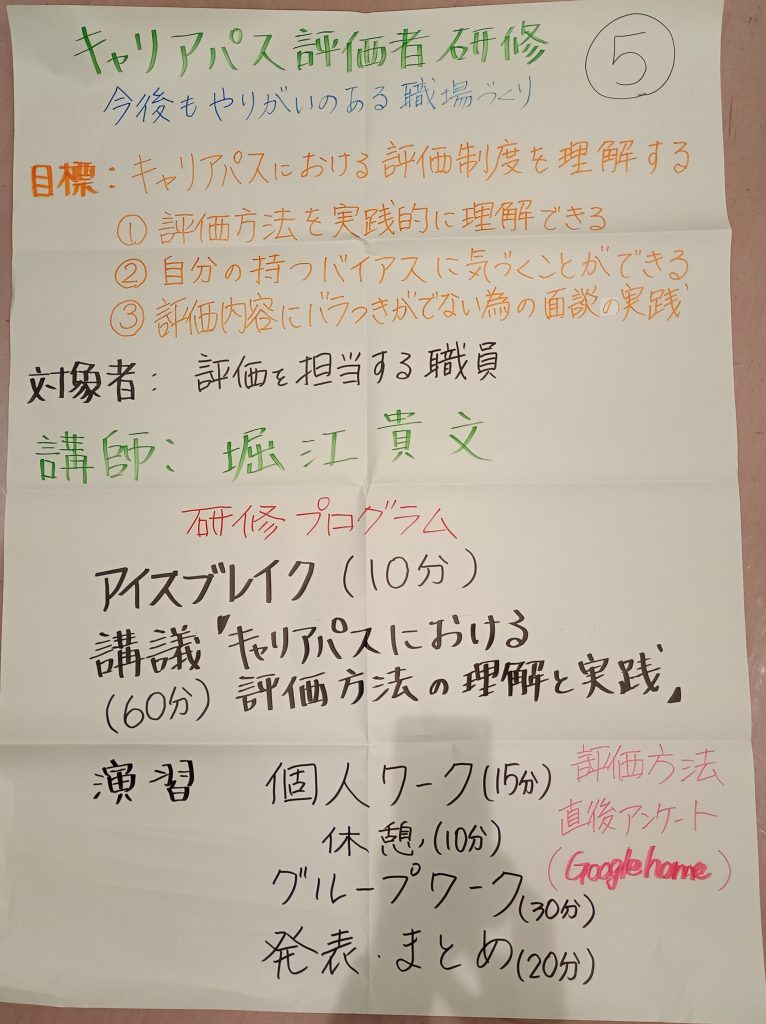 キャリアパス評価者研修 ⑤
今後もやりがいのある職場づくり
目標：キャリアパスにおける評価制度を理解する
①評価方法を実践的に理解できる
②自分の持つバイアスに気づくことができる
③評価内容にバラつきがでない為の面談の実践
対象者：評価を担当する職員
講師：堀江貴文
研修プログラム
アイスブレイク(10分)
講議「キャリアパスにおける
(60分) 評価方法の理解と実践」
演習 個人ワーク(15分)
休憩(10分)
グループワーク(30分)
発表・まとめ(20分)
評価方法
直後アンケート
(Googlehome)